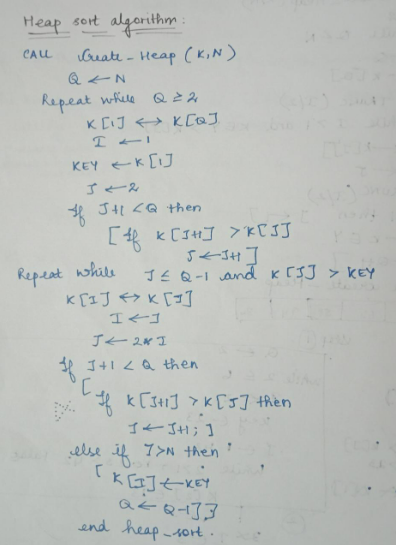 Heap sort algorithm:
CALL Create-Heap (K,N)
Q ← N
Repeat while Q ≥ 2
K[1] ↔ K[Q]
I ← 1
KEY ← K[1]
J ← 2
If J+1 < Q then
[ If K[J+1] > K[J]
J ← J+1 ]
Repeat while J ≤ Q-1 and K[J] > KEY
K[I] ↔ K[J]
I ← J
J ← 2*I
If J+1 < Q then
[
If K[J+1] > K[J] then
J ← J+1; ]
else if J>N then
[ K[I] ← KEY
Q ← Q-1]}
end heap_sort.